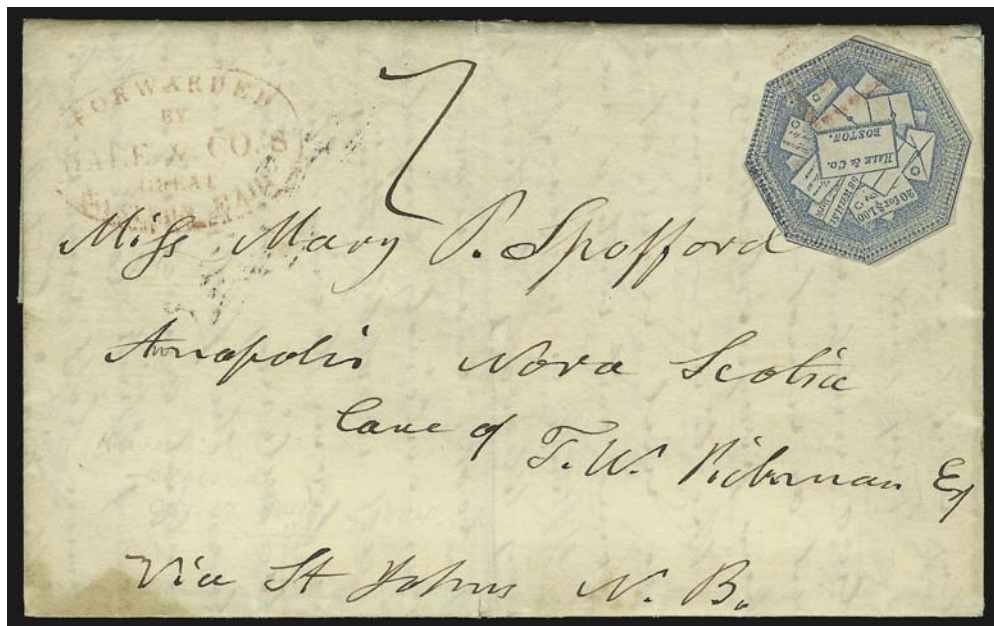 FORWARDED
BY
HALE & CO.'S
GREAT
MAIL
7
HALE & CO.
BOSTON.
20 for $1.00
Miss Mary P. Spofford
Annapolis Nova Scotia
Care of
T. W.
Via St Johns N. B.